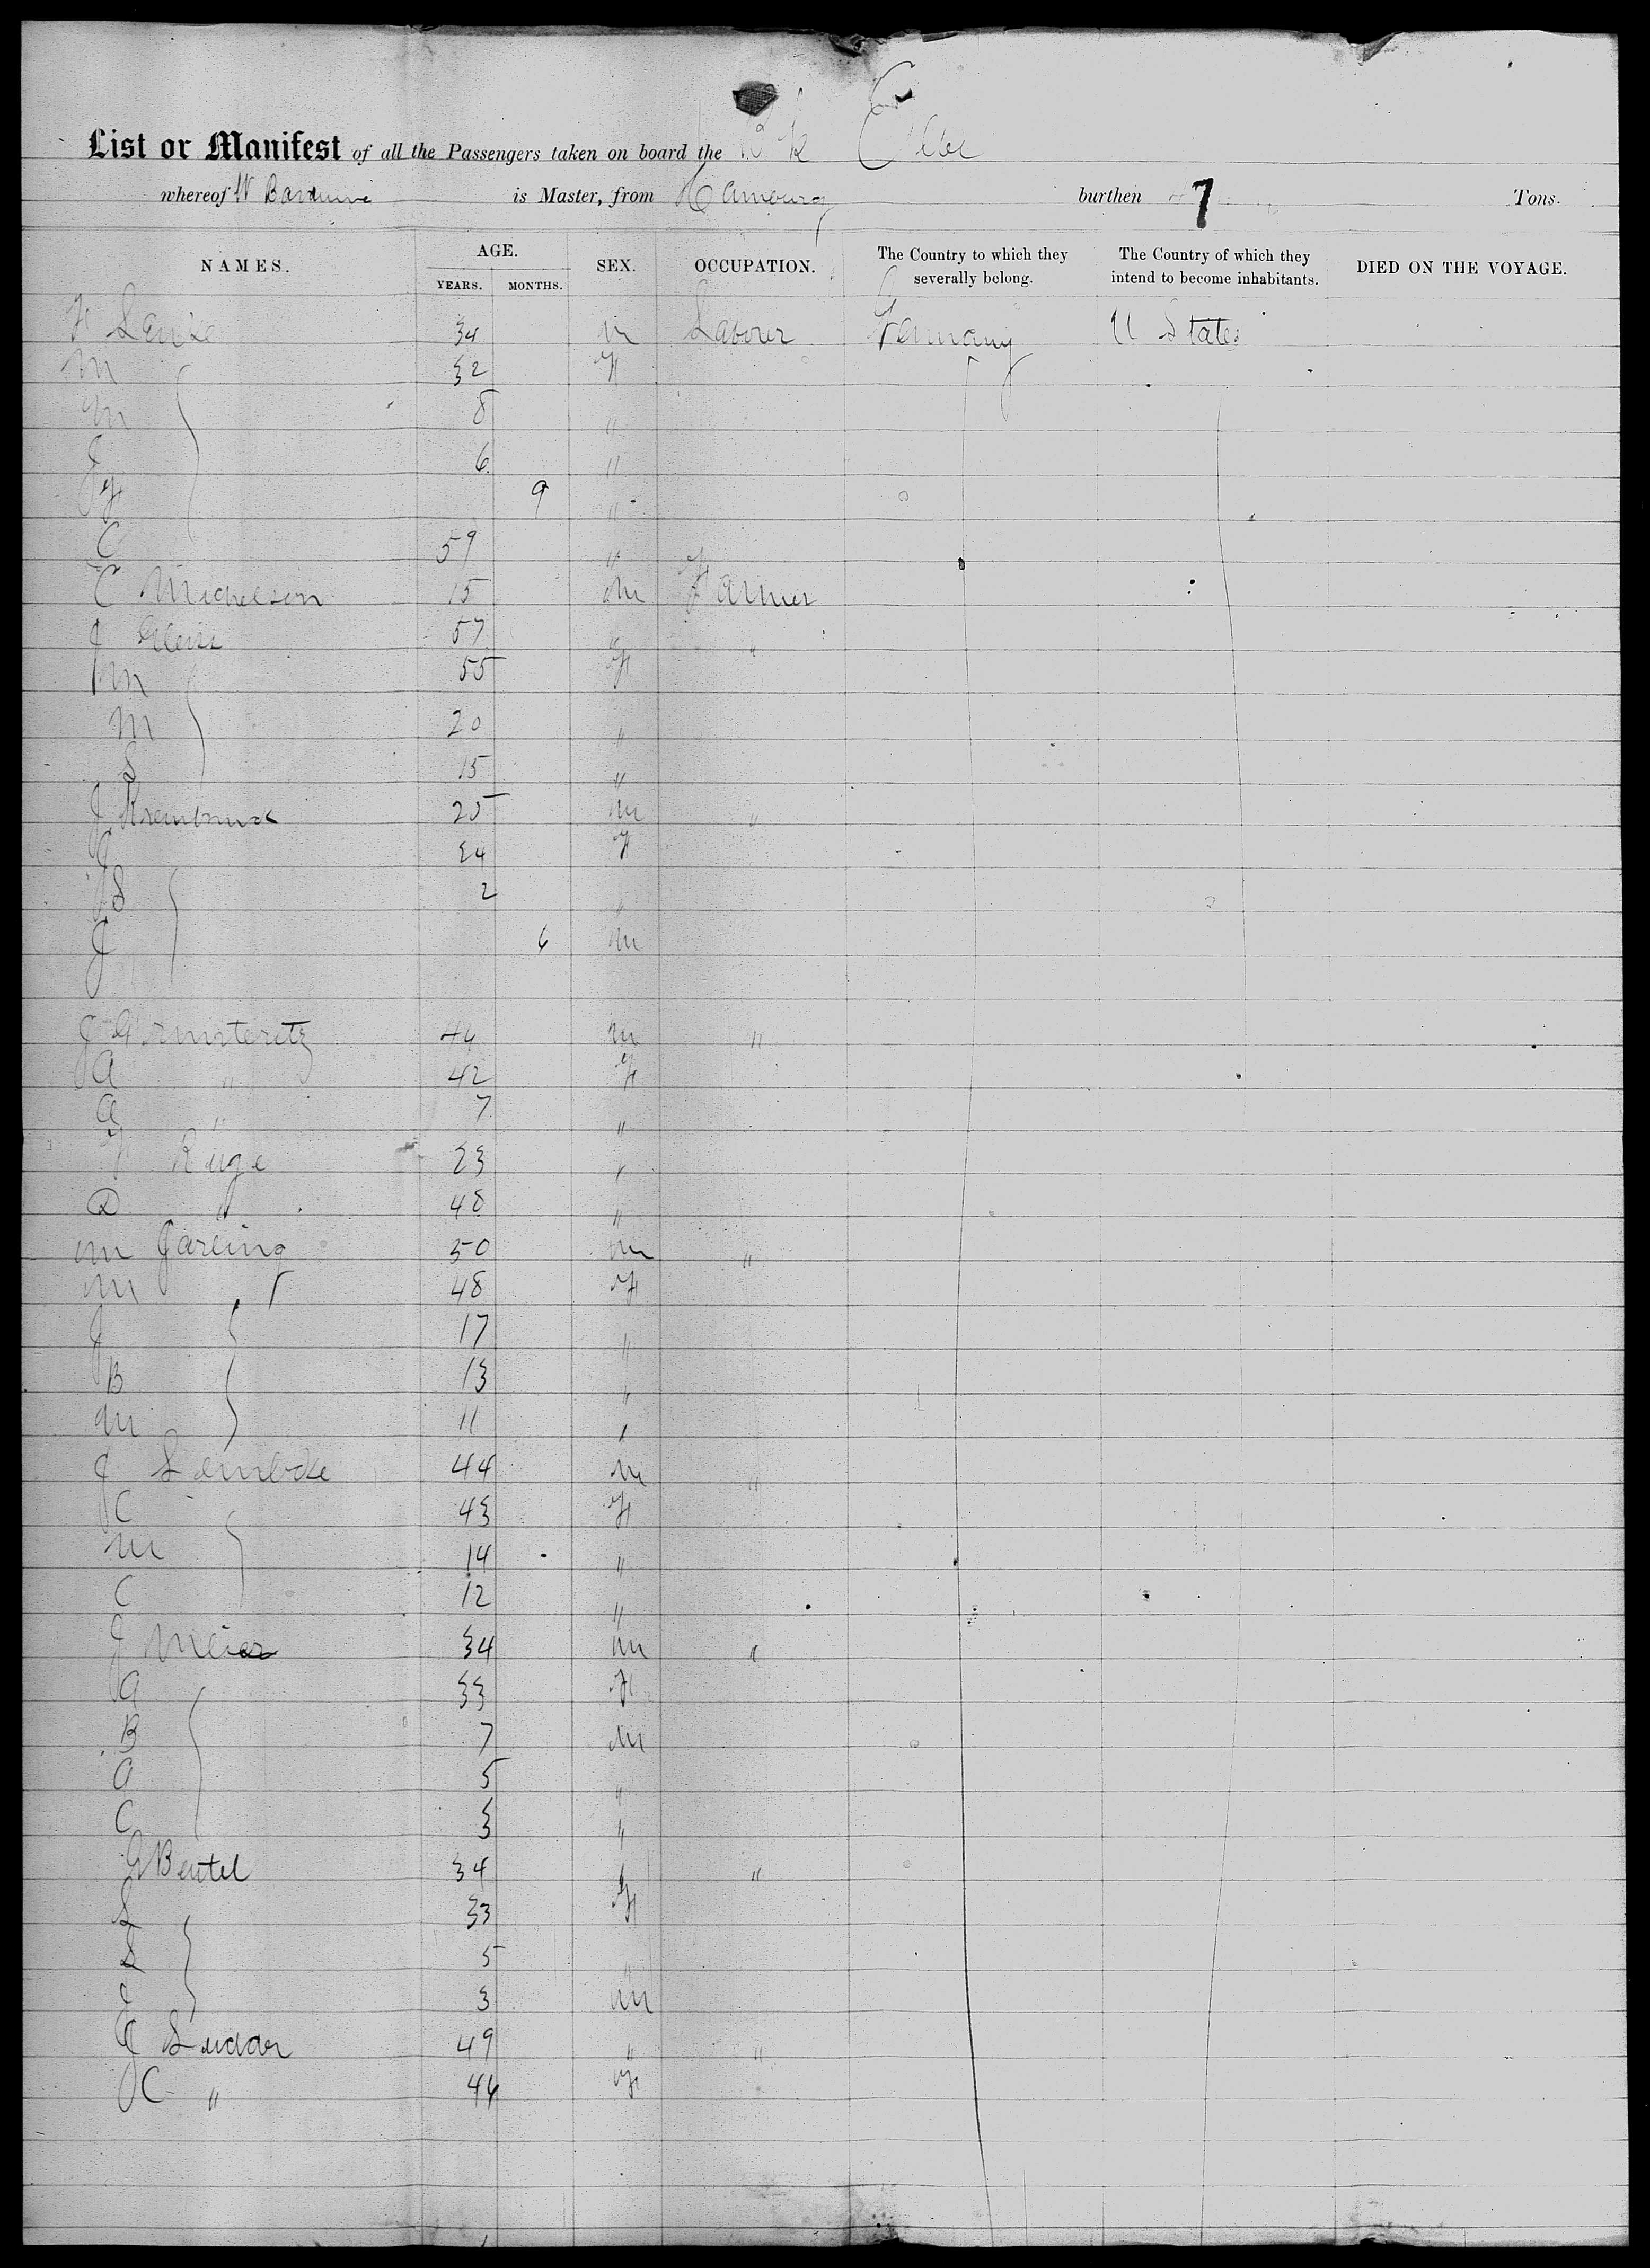 List or Manifest of all the Passengers taken on board the Bk Elbe
whereof W Barduwie is Master, from Hamburg burthen 7 Tons.
NAMES. AGE. YEARS. MONTHS. SEX. OCCUPATION. The Country to which they severally belong. The Country of which they intend to become inhabitants. DIED ON THE VOYAGE.
34 m Labourer Germany U States
M 32 F
M 8 "
J 6 "
F 9 "
C 59 "
C Michelsen 15 m Farmer
J 57 " "
M 55 F
M 20 "
S 15 "
J 25 m "
24 F
S 2 "
J 6 m
J m "
A " 42 F
A " 7 "
F Ruge 23 "
D " 48 "
M 50 m "
M " 48 F
J 17 "
B 13 "
M 11 "
J Lembcke 44 m "
C 43 F
M 14 "
C 12 "
J Meier 34 m "
A 33 F
B 7 m
A 5 "
C 3 "
J Beutel 34 " "
S 33 F
S 5 "
3 m
J 49 " "
C " 46 F